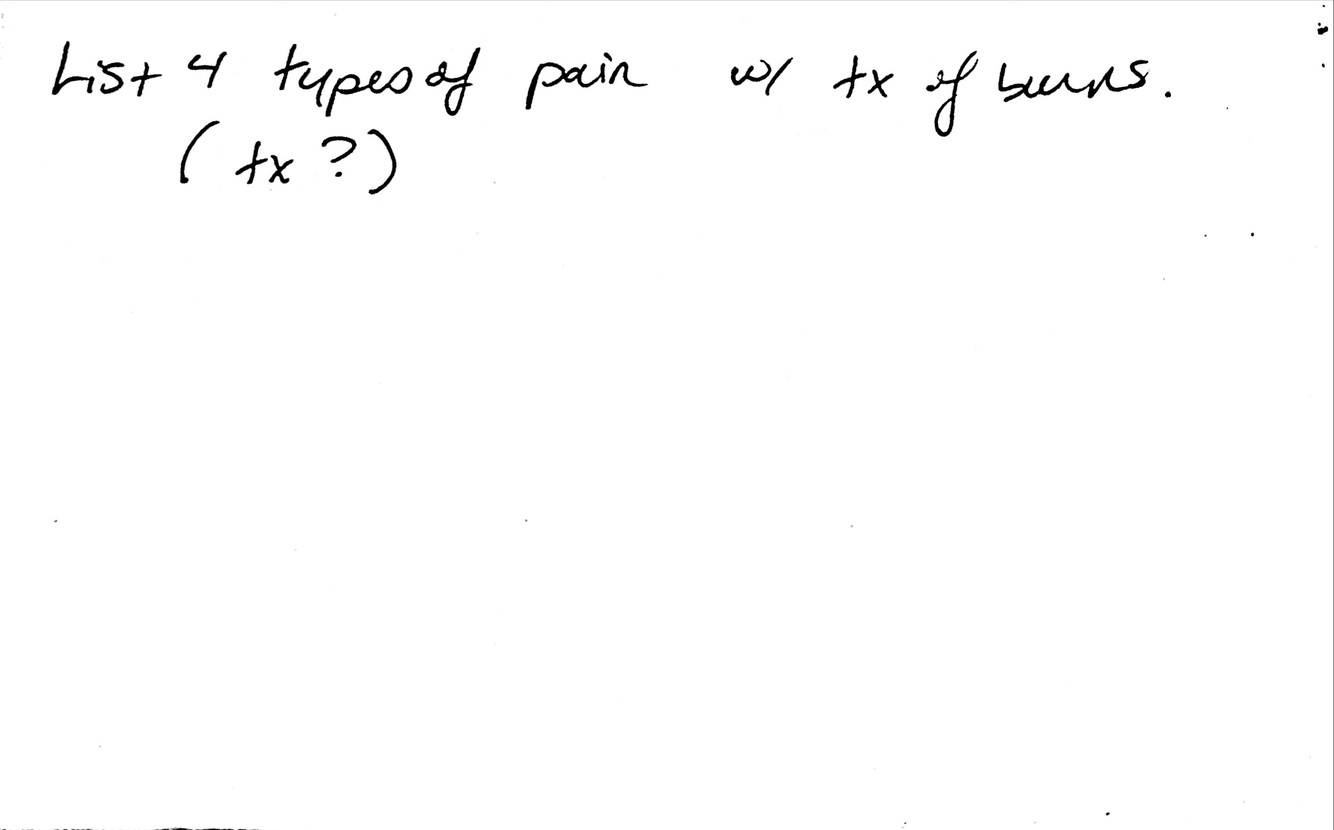 List 4 types of pain w/ tx of burns.
(tx?)